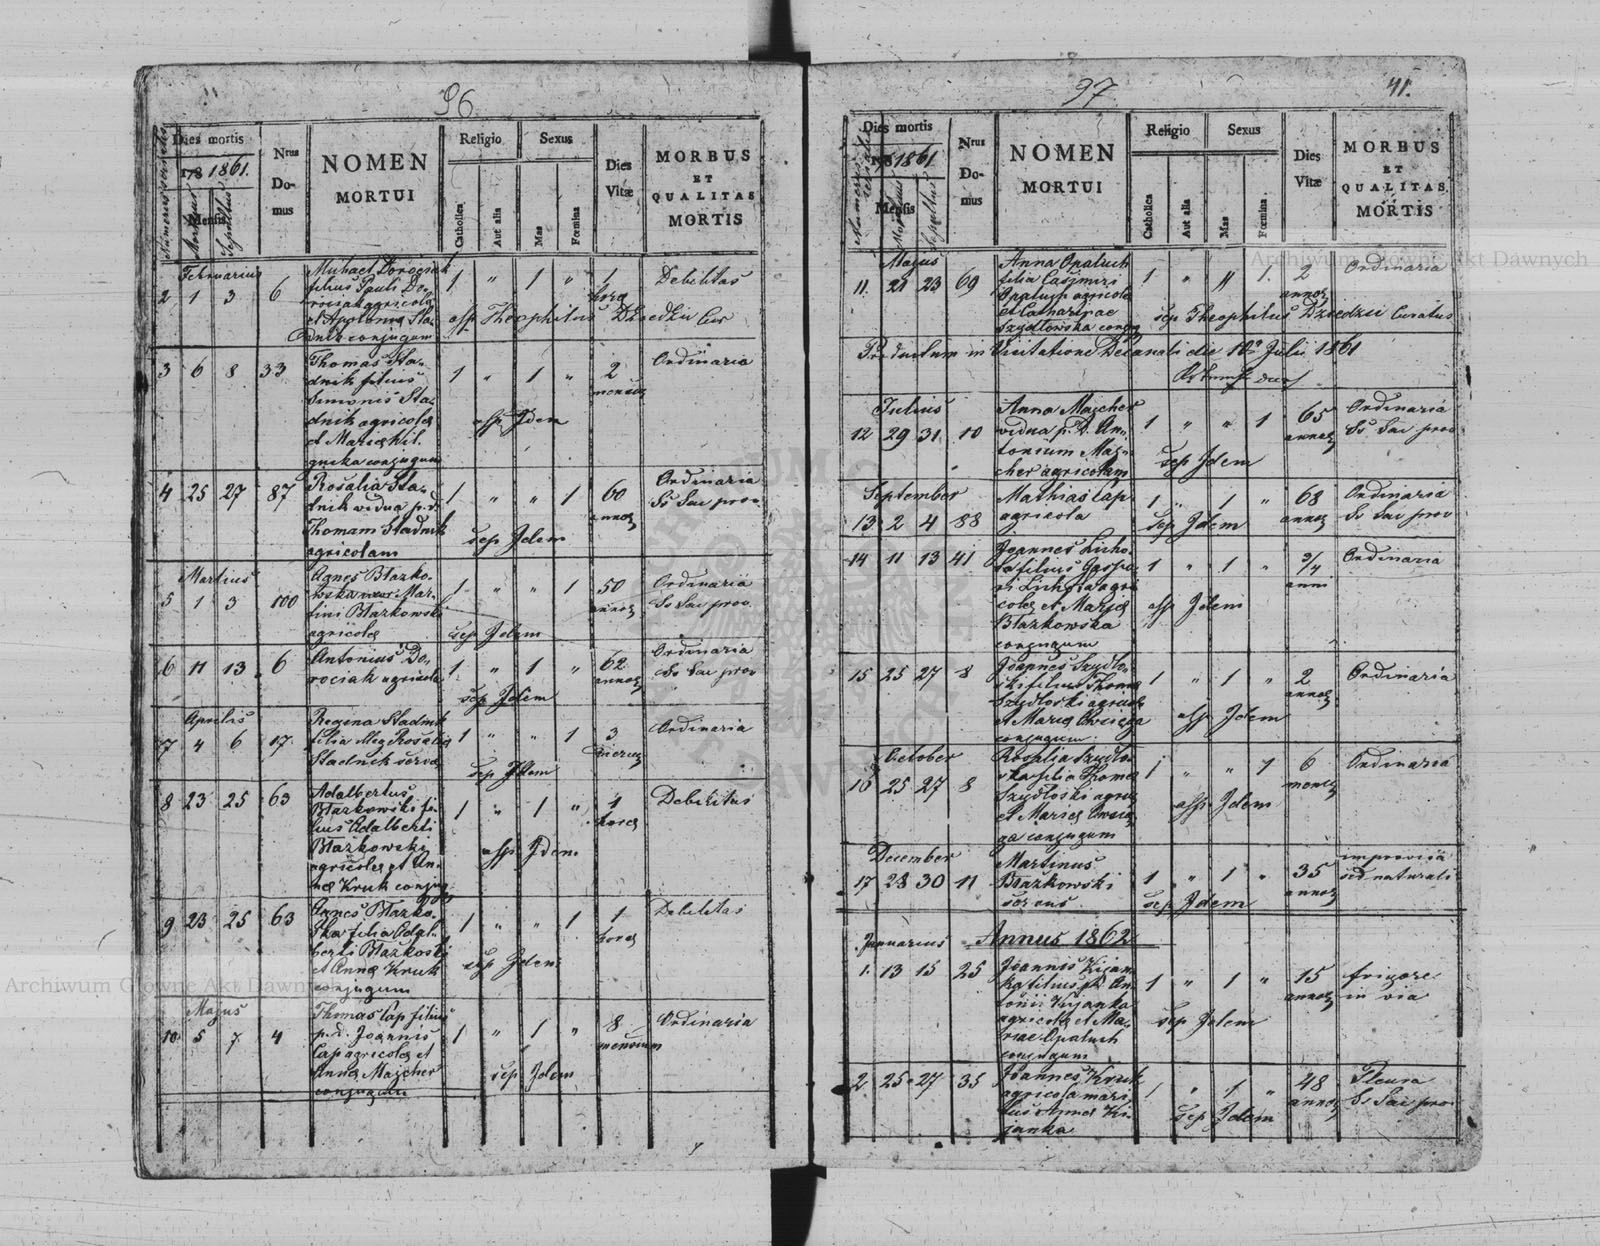 96
Dies mortis
1861.
Mensis
Numerus serialis
Mortuus
Sepultus
Nrus
Do-
mus
NOMEN
MORTUI
Religio
Catholica
Aut alia
Sexus
Mas
Fœmina
Dies
Vitæ
MORBUS
ET
QUALITAS
MORTIS
Februarius
2 1 3 6
Michael Dorociak
filius Pauli Do-
rociak agricolæ
et Apolonia Sta-
conjugum
1 " 1 "
1
hora
Debilitas
asp Theophilus Dziedzic Cur
3 6 8 33
Thomas Sta-
dnik filius
Simonis Sta-
dnik agricolæ
et Mariæ Kit.
conjugum
1 " 1 "
2
menses
Ordinaria
asp Idem
4 25 27 87
Rosalia Sta-
dnik vidua p. d.
Thomam Stadnik
agricolam
1 " " 1
60
annos
Ordinaria
Ss Sac prov.
sep Idem
Martius
5 1 3 100
Agnes Błazko-
wska uxor Mar-
tini Błazkowski
agricolæ
1 " " 1
50
annos
Ordinaria
Ss Sac prov.
sep Idem
6 11 13 6
Antonius Do-
rociak agricola
1 " 1 "
62
annos
Ordinaria
Ss Sac prov
sep Idem
Aprilis
7 4 6 17
Regina Stadnik
filia Rosaliæ
Stadnik servæ
1 " " 1
3
Ordinaria
sep Idem
8 23 25 63
Adalbertus
Błazkowski fi-
lius Adalberti
Błażkowski
agricolæ et An-
næ Kruk conjug
1 " 1 "
1
horæ
Debilitas
asp Idem
9 23 25 63
Agnes Błazko-
ska filia Adal-
berti Błażkoski
et Annæ Kruk
conjugum
1 " " 1
1
horæ
Debilitas
asp Idem
Majus
10 5 7 4
Thomas Cap filius
p. d. Joannis
Cap agricolæ et
Annæ Majcher
conjugum
1 " 1 "
8
mensium
Ordinaria
sep Idem
97
41.
Dies mortis
1861
Mensis
Numerus serialis
Mortuus
Sepultus
Nrus
Do-
mus
NOMEN
MORTUI
Religio
Catholica
Aut alia
Sexus
Mas
Fœmina
Dies
Vitæ
MORBUS
ET
QUALITAS
MORTIS
Majus
11. 21 23 69
Anna Opaluch
filia Casimiri
Opaluch agricolæ
et Catharinae
Szydłowska conjug
1 " " 1.
2
annos
Ordinaria
sep Theophilus Dziedzic Curatus
Productum in Visitatione Decanali die 10a Julii 1861
Julius
12 29 31 10
Anna Majcher
vidua p. d. An-
tonium Maj-
cher agricolam
1 " " 1
65
annos
Ordinaria
Ss Sac prov
sep Idem
September
13 2 4 88
Mathias Cap
agricola
1 " 1 "
68
annos
Ordinaria
Ss Sac prov
sep Idem
14 11 13 41
Joannes Licho-
ta filius Gaspa-
ri Lichota agri-
colæ et Mariæ
Błazkowska
conjugum
1 " 1 "
3/4
anni
Ordinaria
asp Idem
15 25 27 8
Joannes Szydło-
ski filius Thomæ
Szydłoski agricolæ
et Mariæ Cwiąga
conjugum
1 " 1 "
2
annos
Ordinaria
asp Idem
October
16 25 27 8
Rosalia Szydło-
ska filia Thomæ
Szydłoski agricol
et Mariæ Cwią-
ga conjugum
1 " " 1
6
menses
Ordinaria
asp Idem
December
17 28 30 11
Martinus
Błażkowski
servus
1 " 1 "
35
annos
improvisa
sed naturali
sep Idem
Januarius
Annus 1862
1. 13 15 25
Joannis Kijan-
ka filius p. d. An-
tonii Kijanka
agricolæ et Ma-
riae Opaluch
conjugum
1 " 1 "
15
annos
frigore
in via
sep Idem
2 25 27 35
Joannes Kruk
agricola mari-
tus Annæ Ki-
janka
1 " 1 "
48
annos
Pleura
Ss Sac prov
sep Idem
Archiwum Główne Akt Dawnych
Archiwum Główne Akt Dawnych